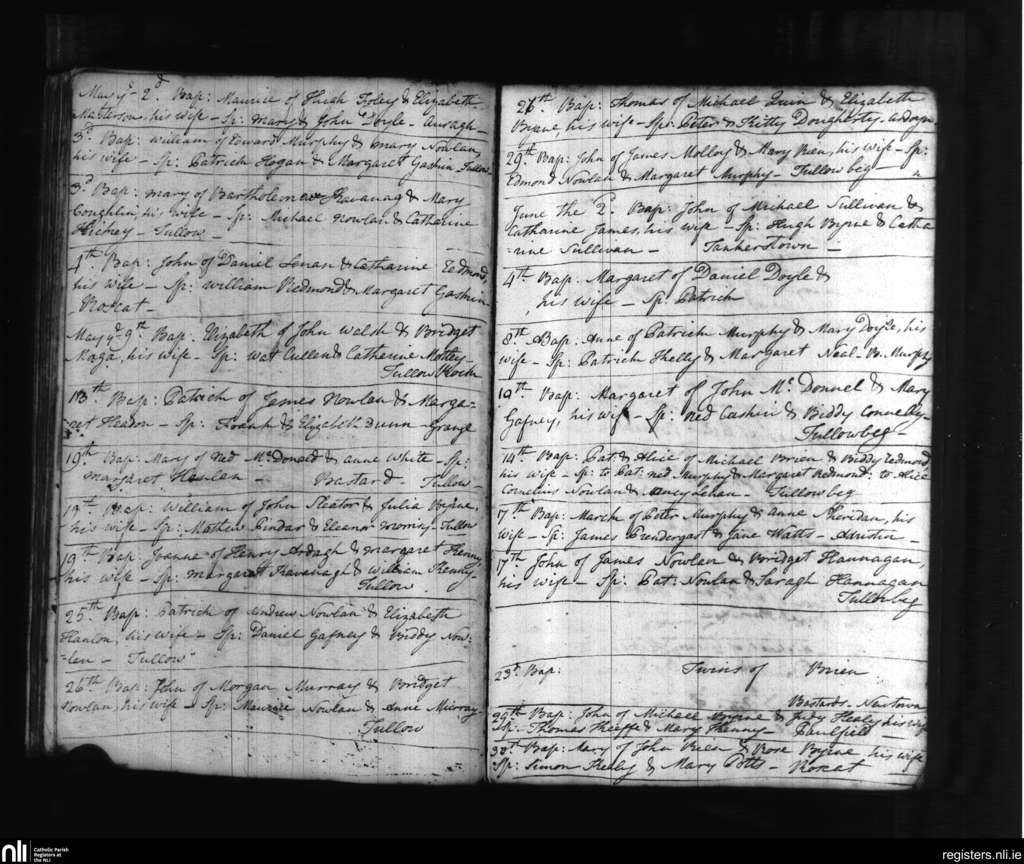 May ye 2d. Bap: Maurice of Hugh Foley & Elizabeth
Matterson, his wife - Sp: Mary & John Doyle -
3d Bap: William of Edward Murphy & Mary Nowlan
his wife - Sp: Patrick Hogan & Margaret Gashin Tullow
3d Bap: Mary of Bartholemew Kavanag & Mary
Coughlin, his wife - Sp: Michael Nowlan & Catharine
Hickey - Tullow -
4th Bap: John of Daniel Lenan & Catharine Redmond,
his wife - Sp: William Redmond & Margaret Gashin
Roscat -
May ye 9th Bap: Elizabeth of John Walsh & Bridget
his wife - Sp: Wat Cullen & Catherine Motley -
Tullow
13th Bap: Patrick of James Nowlan & Marga-
ret Headon - Sp: Frank & Elizabeth Dunn - Grange
19th Bap: Mary of Ned McDonald & Anne White - Sp:
Margaret - Bastard - Tullow -
19th Bap: William of John Sleator & Julia Byrne,
his wife - Sp: Mathew & Eleanor Tullow
19th Bap: Joanne of Henry Ardagh & Margaret Kenny
his wife - Sp: Margaret Kavanagh & William Kenny -
Tullow
25th Bap: Patrick of Andrew Nowlan & Elizabeth
Hanlon, his wife - Sp: Daniel Gafney & Biddy Now=
=len - Tullow
26th Bap: John of Morgan Murray & Bridget
Nowlan, his wife - Sp: Maurice Nowlan & Anne Murray -
Tullow
26th Bap: Thomas of Michael Quin & Elizabeth
Byrne, his wife - Sp: Peter & Kitty Dougherty
29th Bap: John of James Molloy & Mary Bren, his wife - Sp:
Edmond Nowlan & Margaret Murphy - Tullowbeg
June the 2d. Bap: John of Michael Sullivan &
Catharine James, his wife - Sp: Hugh Byrne & Catha
=rine Sullivan - Tankerstown -
4th Bap: Margaret of Daniel Doyle &
, his wife - Sp: Patrick
8th Bap: Anne of Patrick Murphy & Mary Doyle, his
wife - Sp: Patrick Shelly & Margaret Neal - Murphy
10th Bap: Margaret of John McDonnel & Mary
Gafney, his wife - Sp: Ned Cashin & Biddy Connelly -
Tullowbeg -
14th Bap: Pat: & Alice of Michael Brien & Biddy Redmond,
his wife - Sp: to Pat: Ned Murphy & Margaret Redmond: to Alice
Cornelius Nowlan & Nancy - Tullowbeg
17th Bap: of Peter Murphy & Anne Sheridan, his
wife - Sp: James Prendergast & Jane Watts -
17th John of James Nowlan & Bridget Hannagan,
his wife - Sp: Pat: Nowlan & Saragh Hannagan
Tullowbeg
23d Bap: Twins of Brien
Bastards - Newtown
29th Bap: John of Michael Byrne & Judy Healy his wife
Sp: Thomas Keeffe & Mary Kenny - Paulfield -
30th Bap: Mary of John Bren & Rose Byrne his wife
Sp: Simon Kealy & Mary Potts - Roscat -
nli
Catholic Parish
Registers at
the NLI
registers.nli.ie